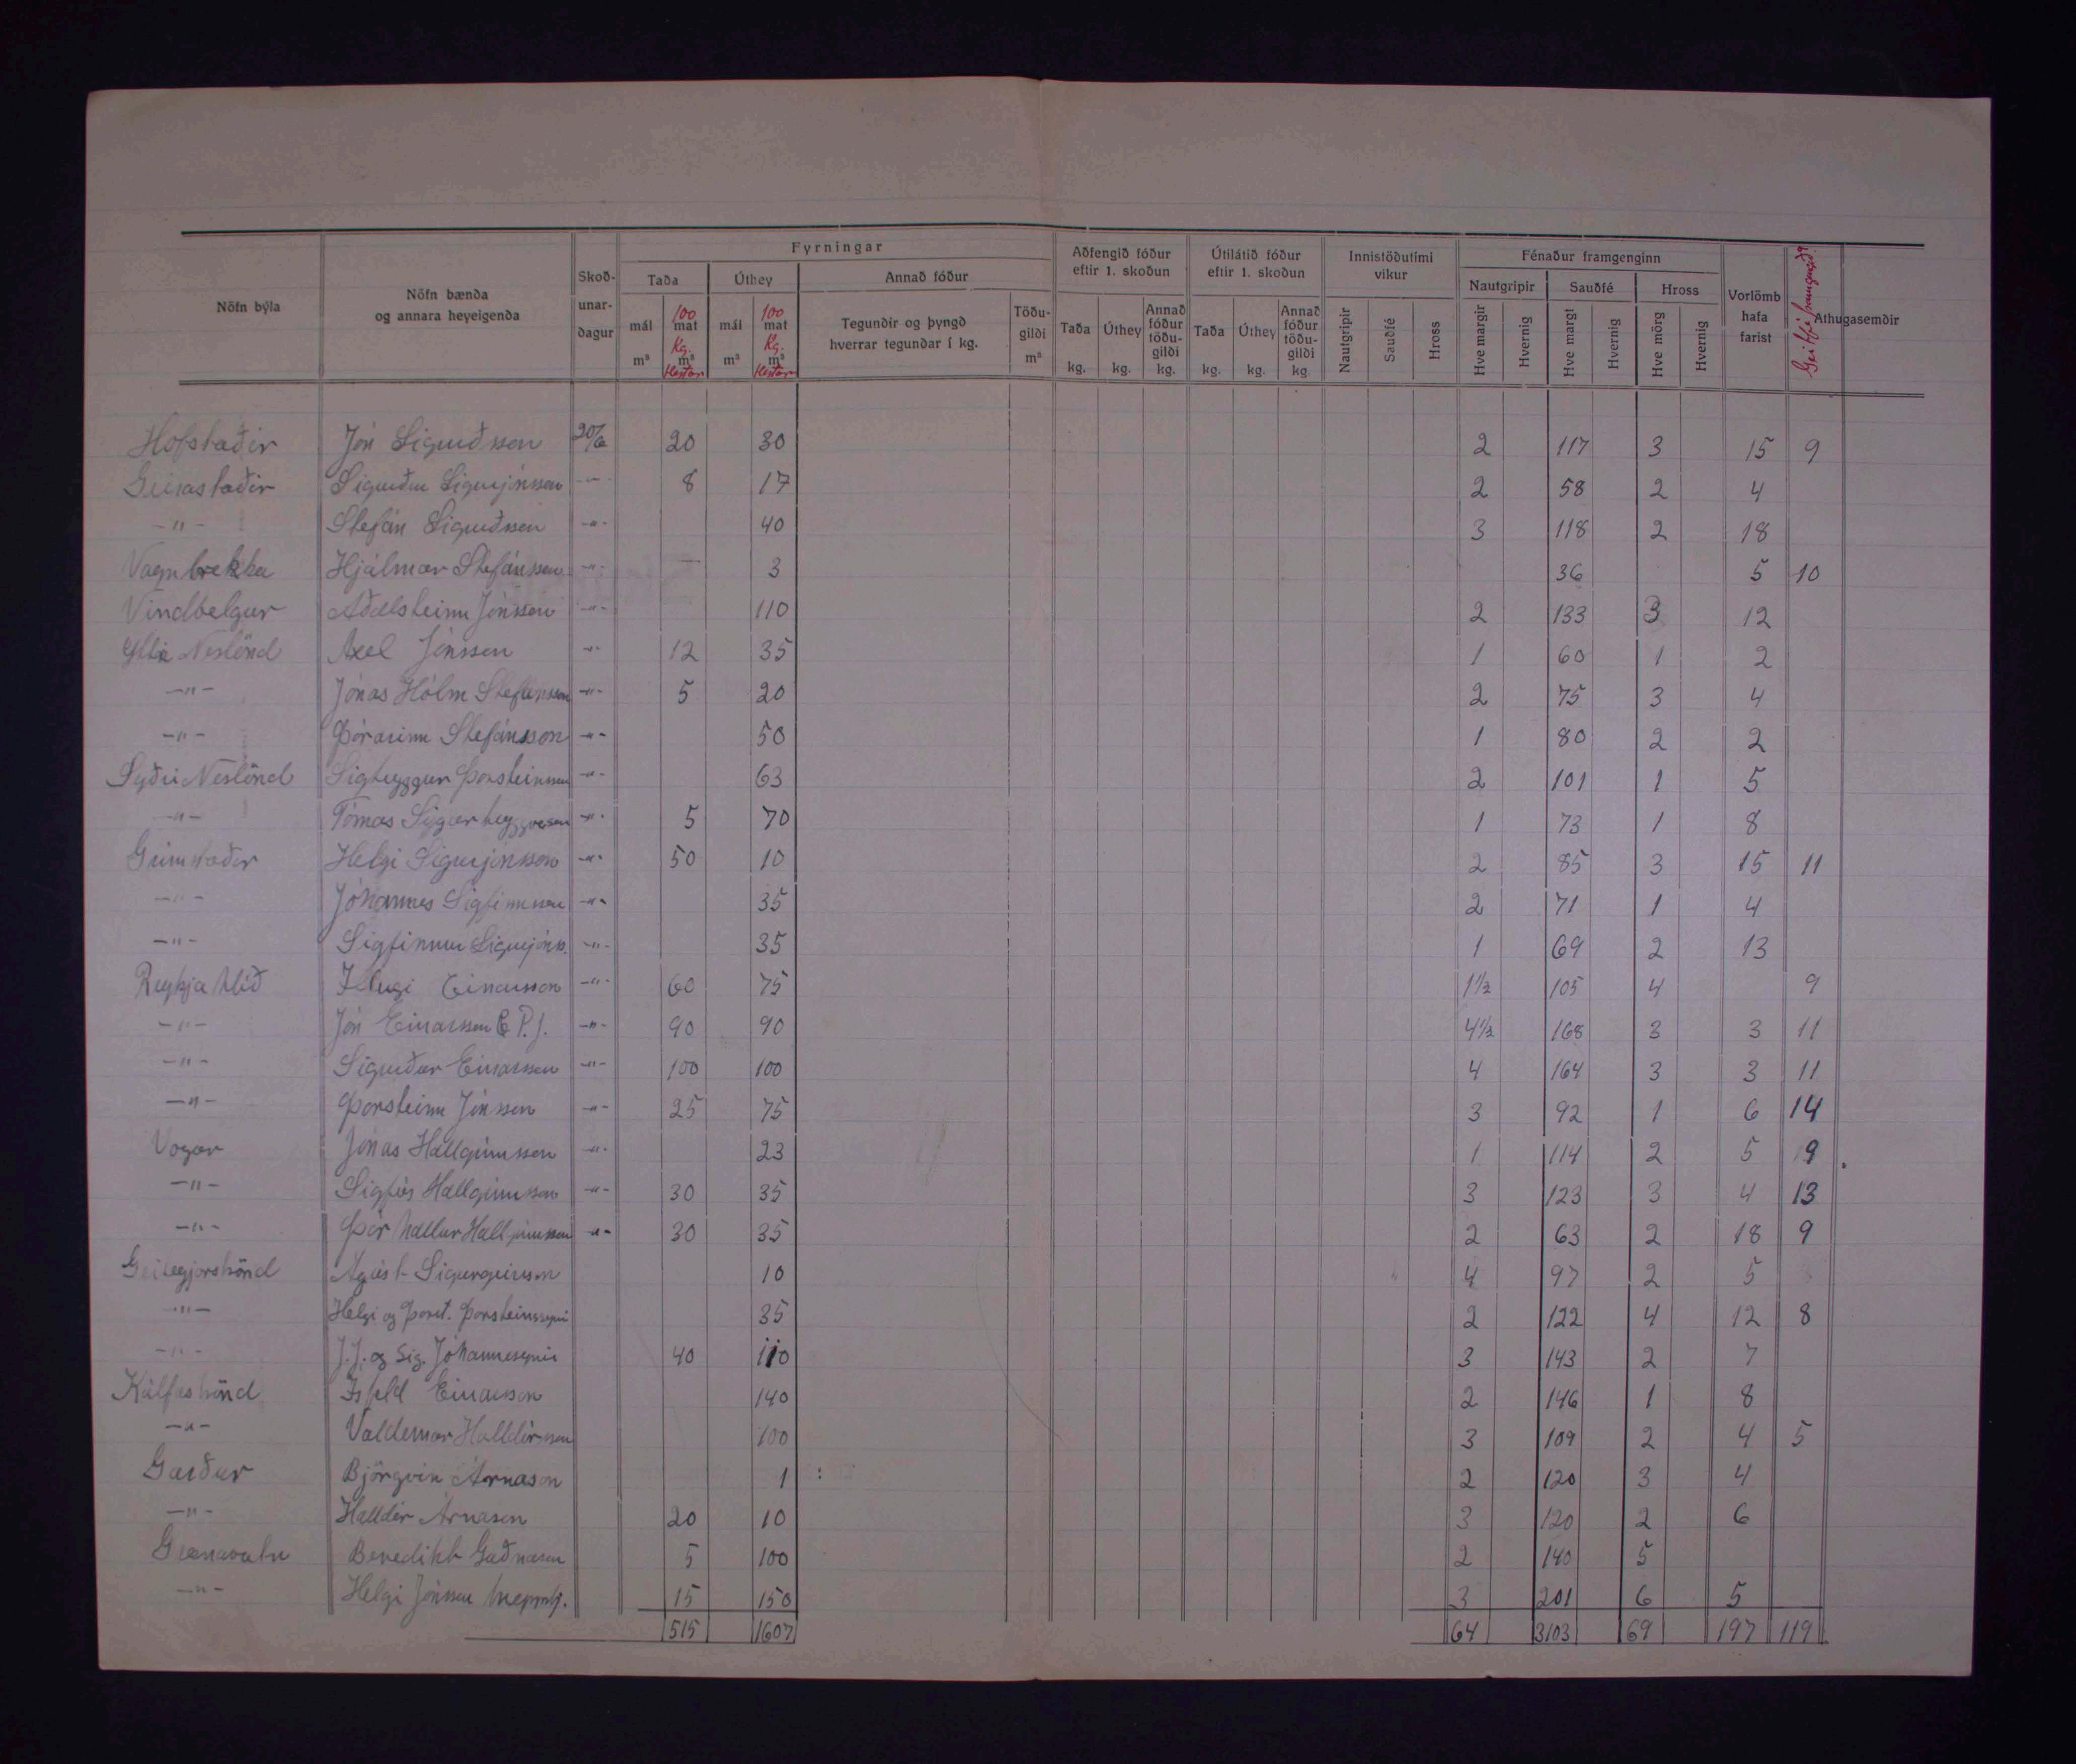 Fyrningar
Nöfn býla
Nöfn bænda og annara heyeigenda
Skoð-unar-dagur
Taða
Úthey
Annað fóður
mál m³
100 mat Kg. m³ Hestar
mál m³
100 mat Kg. m³ Hestar
Tegundir og þyngd hverrar tegundar í kg.
Töðu-gildi m³
Aðfengið fóður eftir 1. skoðun
Taða kg.
Úthey kg.
Annað fóður töðu-gildi kg.
Útilátið fóður eftir 1. skoðun
Taða kg.
Úthey kg.
Annað fóður töðu-gildi kg
Innistöðutími vikur
Nautgripir
Sauðfé
Hross
Fénaður framgenginn
Nautgripir
Sauðfé
Hross
Hve margir
Hvernig
Hve margt
Hvernig
Hve mörg
Hvernig
Vorlömb hafa farist
Athugasemdir
Hofstaðir Jón Sigurðsson 20/6 20 30 2 117 3 15 9
Geirastaðir Sigurður Sigurjónsson -"- 8 17 2 58 2 4
-"- Stefán Sigurðsson -"- 40 3 118 2 18
Vagnbrekka Hjálmar Stefánsson -"- 3 36 5 10
Vindbelgur Aðalsteinn Jónsson -"- 110 2 133 3 12
Ytri Neslönd Axel Jónsson -"- 12 35 1 60 1 2
-"- Jónas Hólm Stefánsson -"- 5 20 2 75 3 4
-"- Þórarinn Stefánsson -"- 50 1 80 2 2
Syðri Neslönd Sigtryggur Þorsteinsson -"- 63 2 101 1 5
-"- Tómas Sigurtryggvason -"- 5 70 1 73 1 8
Grímstaðir Helgi Sigurjónsson -"- 50 10 2 85 3 15 11
-"- Jóhannes Sigfinnsson -"- 35 2 71 1 4
-"- Sigfinnur Sigurjónss. -"- 35 1 69 2 13
Reykjahlíð Illugi Einarsson -"- 60 75 1½ 105 4 9
-"- Jón Einarsson & P.J. -"- 90 90 4½ 168 3 3 11
-"- Sigurður Einarsson -"- 100 100 4 164 3 3 11
-"- Þorsteinn Jónsson -"- 25 75 3 92 1 6 14
Vogar Jónas Hallgrímsson -"- 23 1 114 2 5 9
-"- Sigfús Hallgrímsson -"- 30 35 3 123 3 4 13
-"- Þórhallur Hallgrímsson -"- 30 35 2 63 2 18 9
Ágúst Sigurgeirsson 10 4 97 2 5
-"- Helgi og Þorst. Þorsteinssynir 35 2 122 4 12 8
-"- J.J. og Sig. Jóhannessynir 40 110 3 143 2 7
Kálfaströnd Ísfeld Einarsson 140 2 146 1 8
-"- Valdemar Halldórsson 100 3 109 2 4 5
Garður Björgvin Árnason 1 2 120 3 4
-"- Halldór Árnason 20 10 3 120 2 6
Grænavatn Benedikt Guðnason 5 100 2 140 5
-"- Helgi Jónsson 15 150 3 201 6 5
515 1607 64 3103 69 197 119